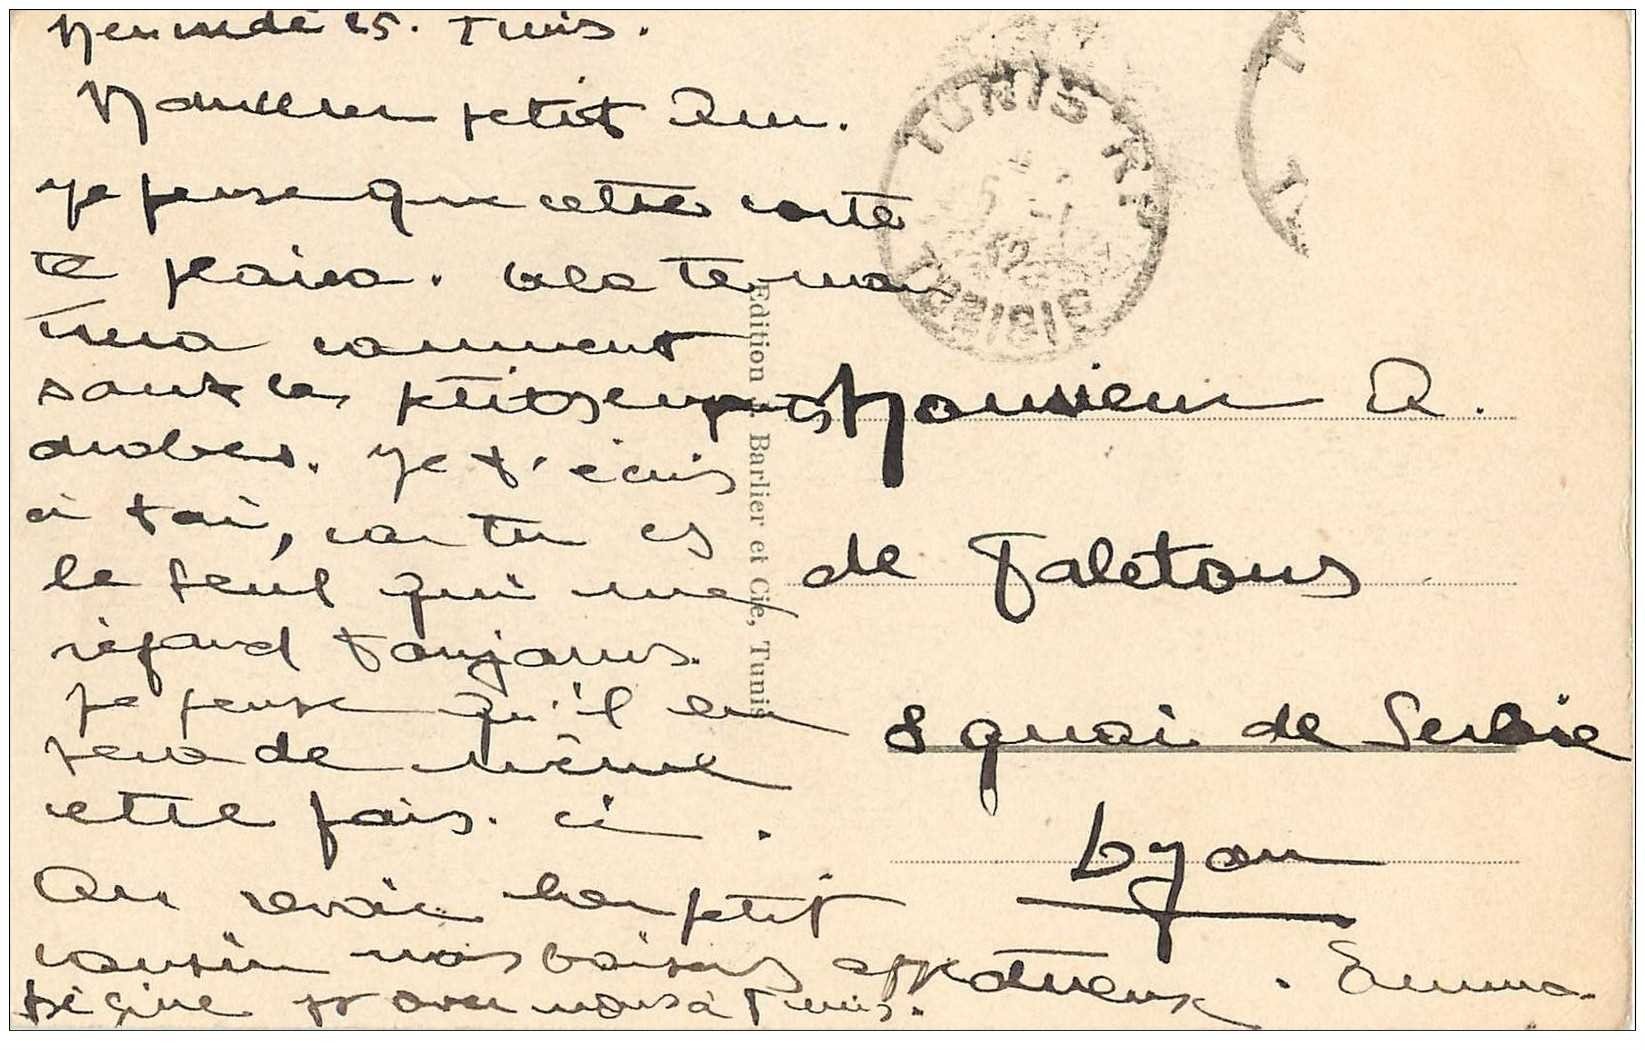 25. Tunis.
petit
Je pense que cette carte
te plaira. Cela te mon
trera comment
sont les petits serpents
arabes. Je t'écris
à toi, car tu es
le seul qui me
répond toujours.
Je pense qu'il en
sera de même
cette fois-ci.
Au revoir mon petit
cousin nos baisers affectueux. Emma.
est avec nous à Tunis.
TUNIS R.P.
TUNISIE
Edition Barlier et Cie, Tunis
Monsieur A.
de Faletous
8 quai de Serbie
Lyon